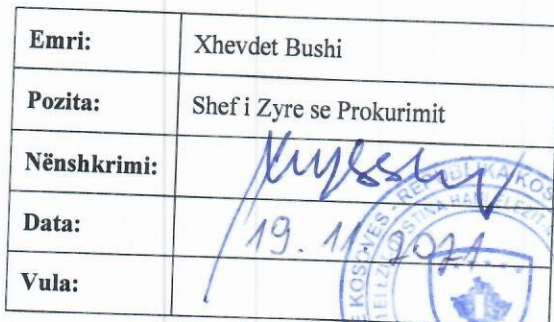 Emri: Xhevdet Bushi
Pozita: Shef i Zyre se Prokurimit
Nënshkrimi:
Data: 19. 11. 2021
Vula: